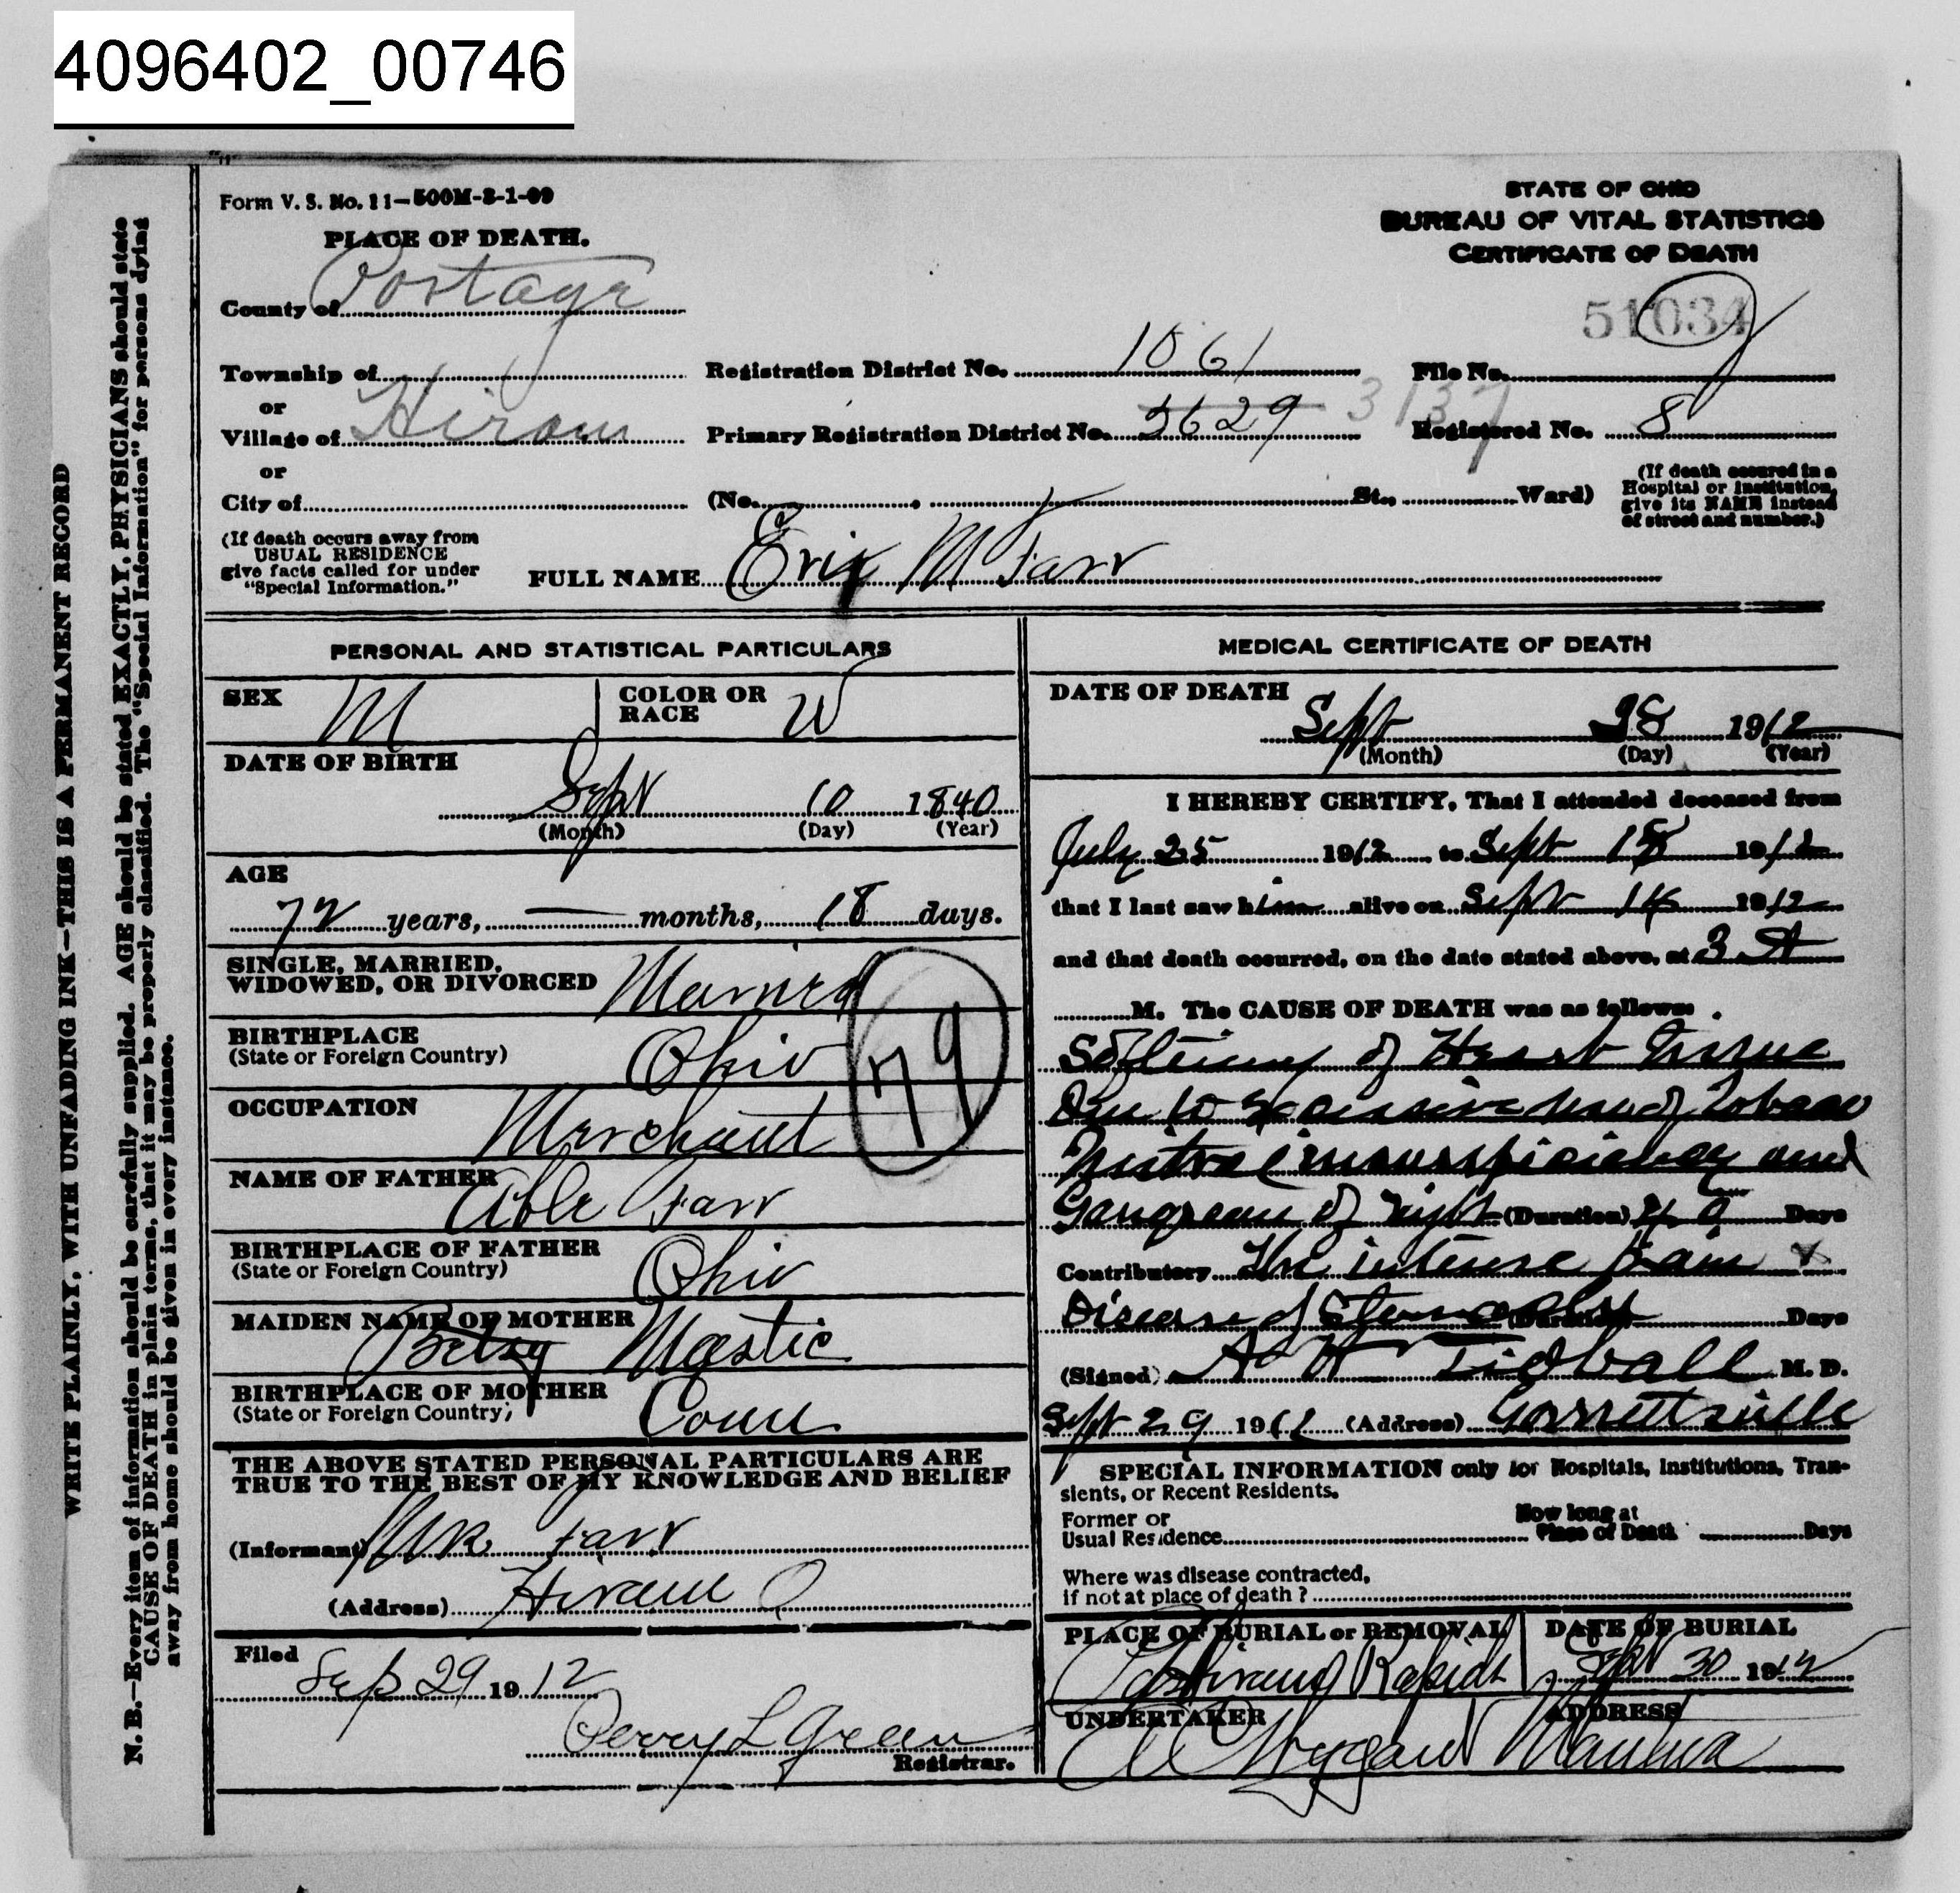 4096402_00746
Form V. S. No. 11—500M-3-1-09
STATE OF OHIO
BUREAU OF VITAL STATISTICS
CERTIFICATE OF DEATH
PLACE OF DEATH.
County of Portage
51034
Township of Registration District No. 1061 File No.
or
Village of Hiram Primary Registration District No. 5629 3137 Registered No. 8
or
City of (No. St., Ward)
(If death occured in a
Hospital or Institution,
give its NAME instead
of street and number.)
(If death occurs away from
USUAL RESIDENCE
give facts called for under
"Special Information."
FULL NAME M Farr
WRITE PLAINLY, WITH UNFADING INK—THIS IS A PERMANENT RECORD
N. B.—Every item of information should be carefully supplied. AGE should be stated EXACTLY. PHYSICIANS should state
CAUSE OF DEATH in plain terms, that it may be properly classified. The "Special Information" for persons dying
away from home should be given in every instance.
PERSONAL AND STATISTICAL PARTICULARS
SEX M COLOR OR RACE W
DATE OF BIRTH
Sept 10 1840
(Month) (Day) (Year)
AGE
72 years, — months, 18 days.
SINGLE, MARRIED,
WIDOWED, OR DIVORCED Married
79
BIRTHPLACE
(State or Foreign Country) Ohio
OCCUPATION
Merchant
NAME OF FATHER
Able Farr
BIRTHPLACE OF FATHER
(State or Foreign Country) Ohio
MAIDEN NAME OF MOTHER
Betsy Mastic
BIRTHPLACE OF MOTHER
(State or Foreign Country) Conn
THE ABOVE STATED PERSONAL PARTICULARS ARE
TRUE TO THE BEST OF MY KNOWLEDGE AND BELIEF
(Informant) Farr
(Address) Hiram O
Filed
Sep 29 1912
Perry L Green
Registrar.
MEDICAL CERTIFICATE OF DEATH
DATE OF DEATH
Sept 28 1912
(Month) (Day) (Year)
I HEREBY CERTIFY, That I attended deceased from
July 25 1912 to Sept 18 1912
that I last saw him alive on Sept 14 1912
and that death occurred, on the date stated above, at 3 A
M. The CAUSE OF DEATH was as follows:
Softening of Heart Tissue
Due to excessive use of Tobaco
and
of right (Duration) Days
Contributory The intense pain
Disease of (Duration) Days
(Signed) A W Tidball M. D.
Sept 29 1912 (Address) Garrettsville
SPECIAL INFORMATION only for Hospitals, Institutions, Tran-
sients, or Recent Residents.
Former or
Usual Residence
How long at
Place of Death Days
Where was disease contracted,
if not at place of death?
PLACE OF BURIAL or REMOVAL DATE OF BURIAL
Hiram Rapids Sept 30 1912
UNDERTAKER ADDRESS
Mantua